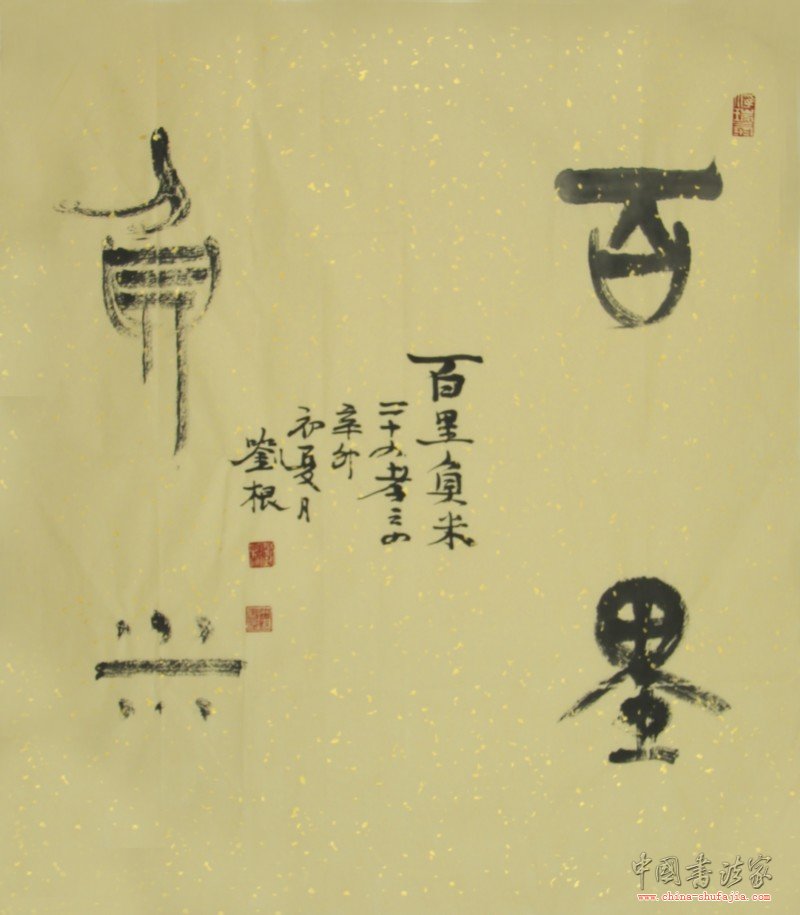 百里
負米
百里負米
二十四孝之四
辛卯
初夏月
劉根
中国书法家
www.china-shufajia.com